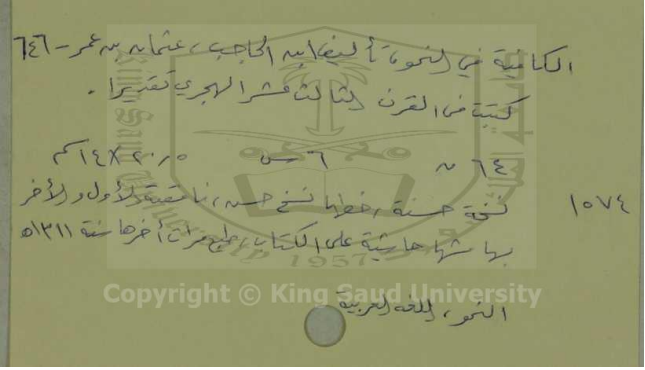 الكافية في النحو، تأليف ابن الحاجب، عثمان بن عمر - ٦٤٦
كتبت في القرن الثالث عشر الهجري تقديرا .
٦٤ ق ٦ س ٢٠،٥ × ١٤ سم
١٥٧٤ نسخة حسنة، خطها نسخ حسن، ناقصة الأول والأخر
بهامشها حاشية على الكتاب، طبع مرات أخرها سنة ١٣١١ه
1957
Copyright © King Saud University
النحو، اللغة العربية